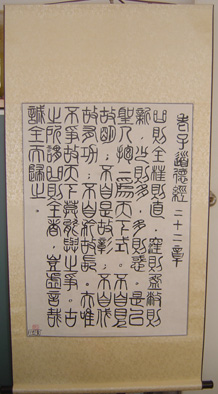 老子道德經 二十二章
曲則全枉則直。窪則盈敝則
新。少則多。多則惑。是以
聖人抱一為天下式。不自見
故明;不自是故彰;不自伐
故有功;不自矜故長。夫唯
不爭故天下莫能與之爭。古
之所謂曲則全者,豈虛言哉
誠全而歸之。